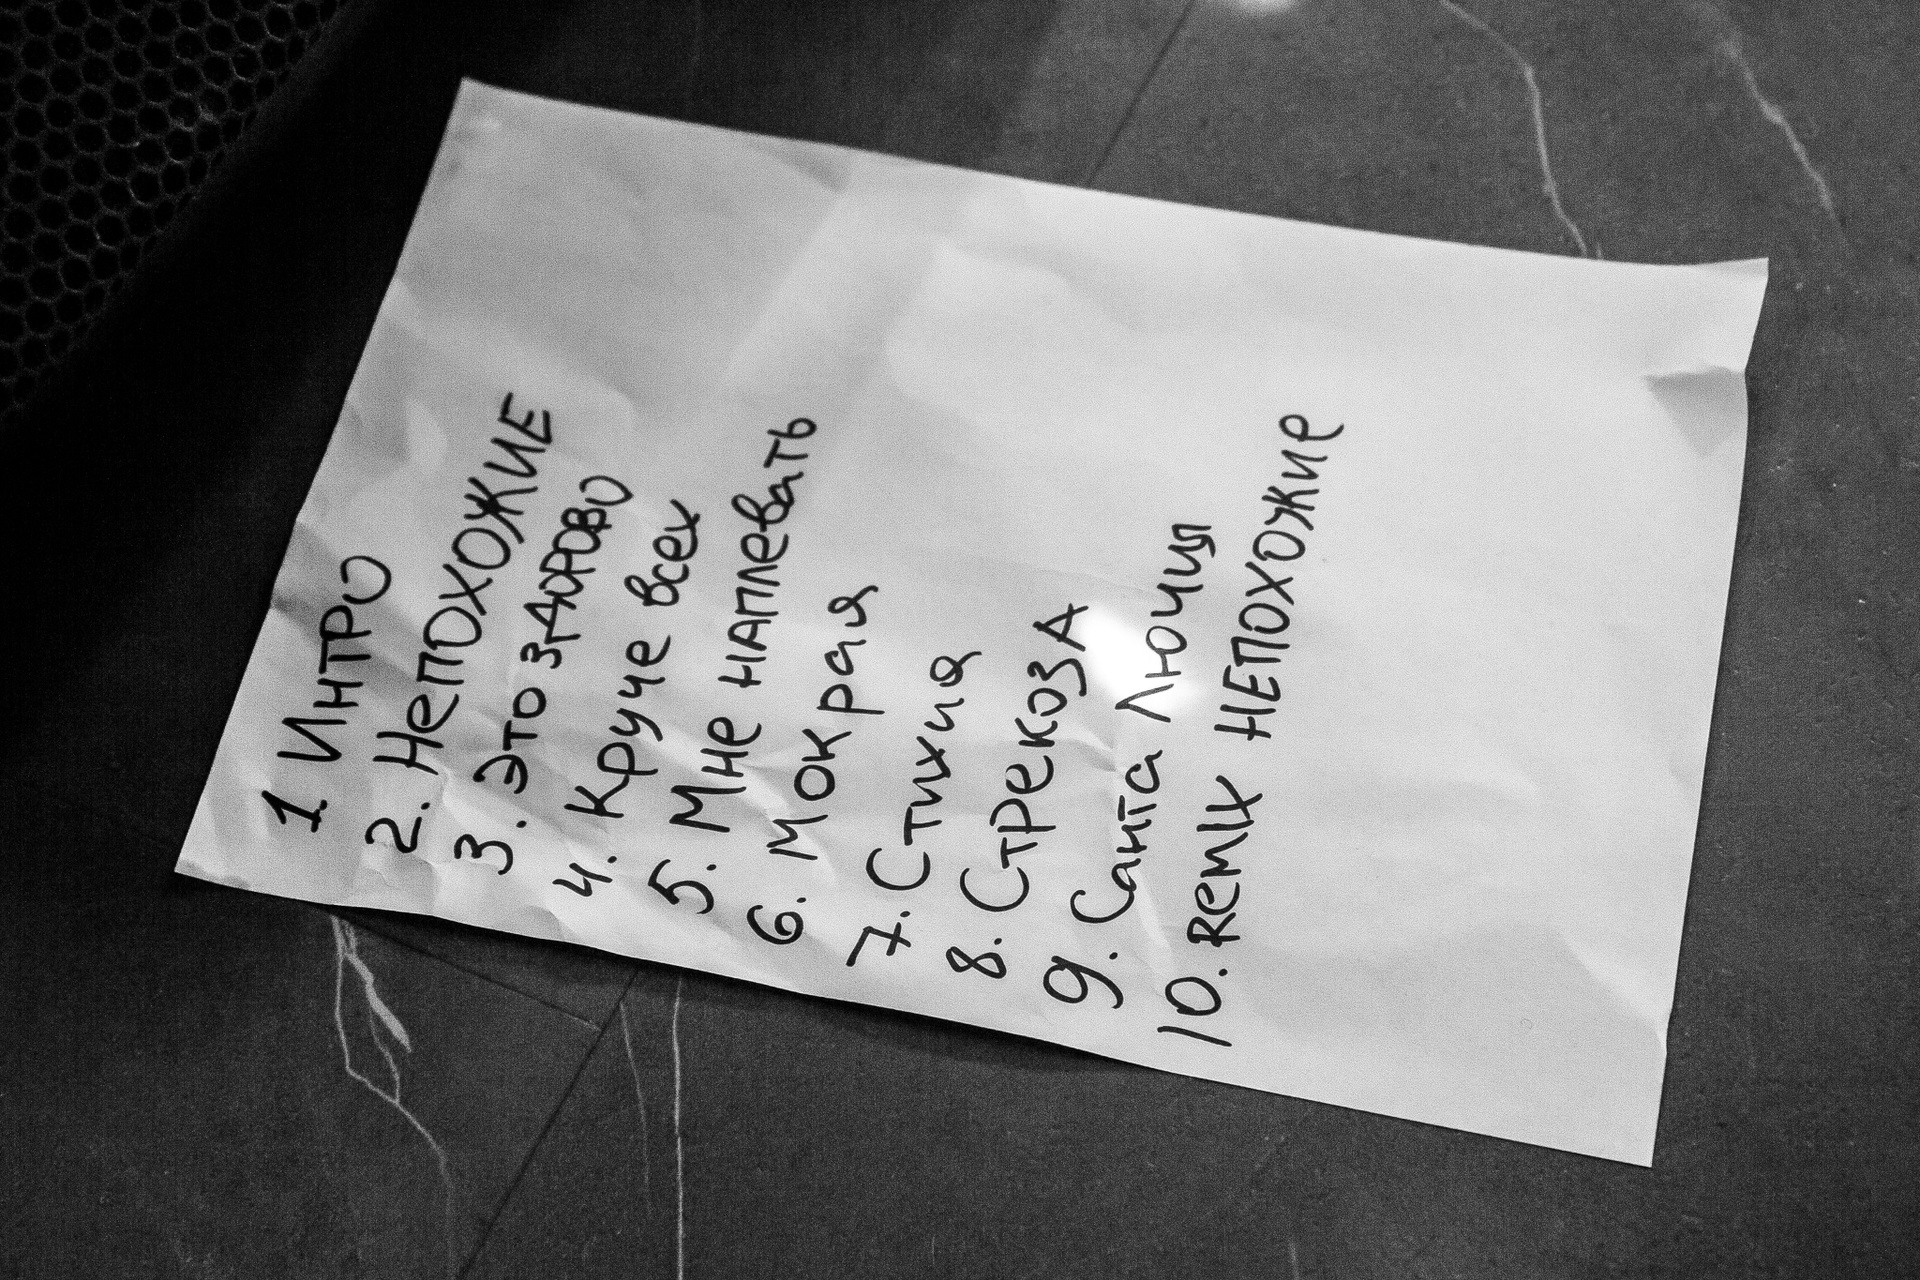 1. Интро
2. Непохожие
3. Это здорово
4. Круче всех
5. Мне наплевать
6. Мокрая
7. Стихия
8. Стрекоза
9. Санта Лючия
10. Remix непохожие